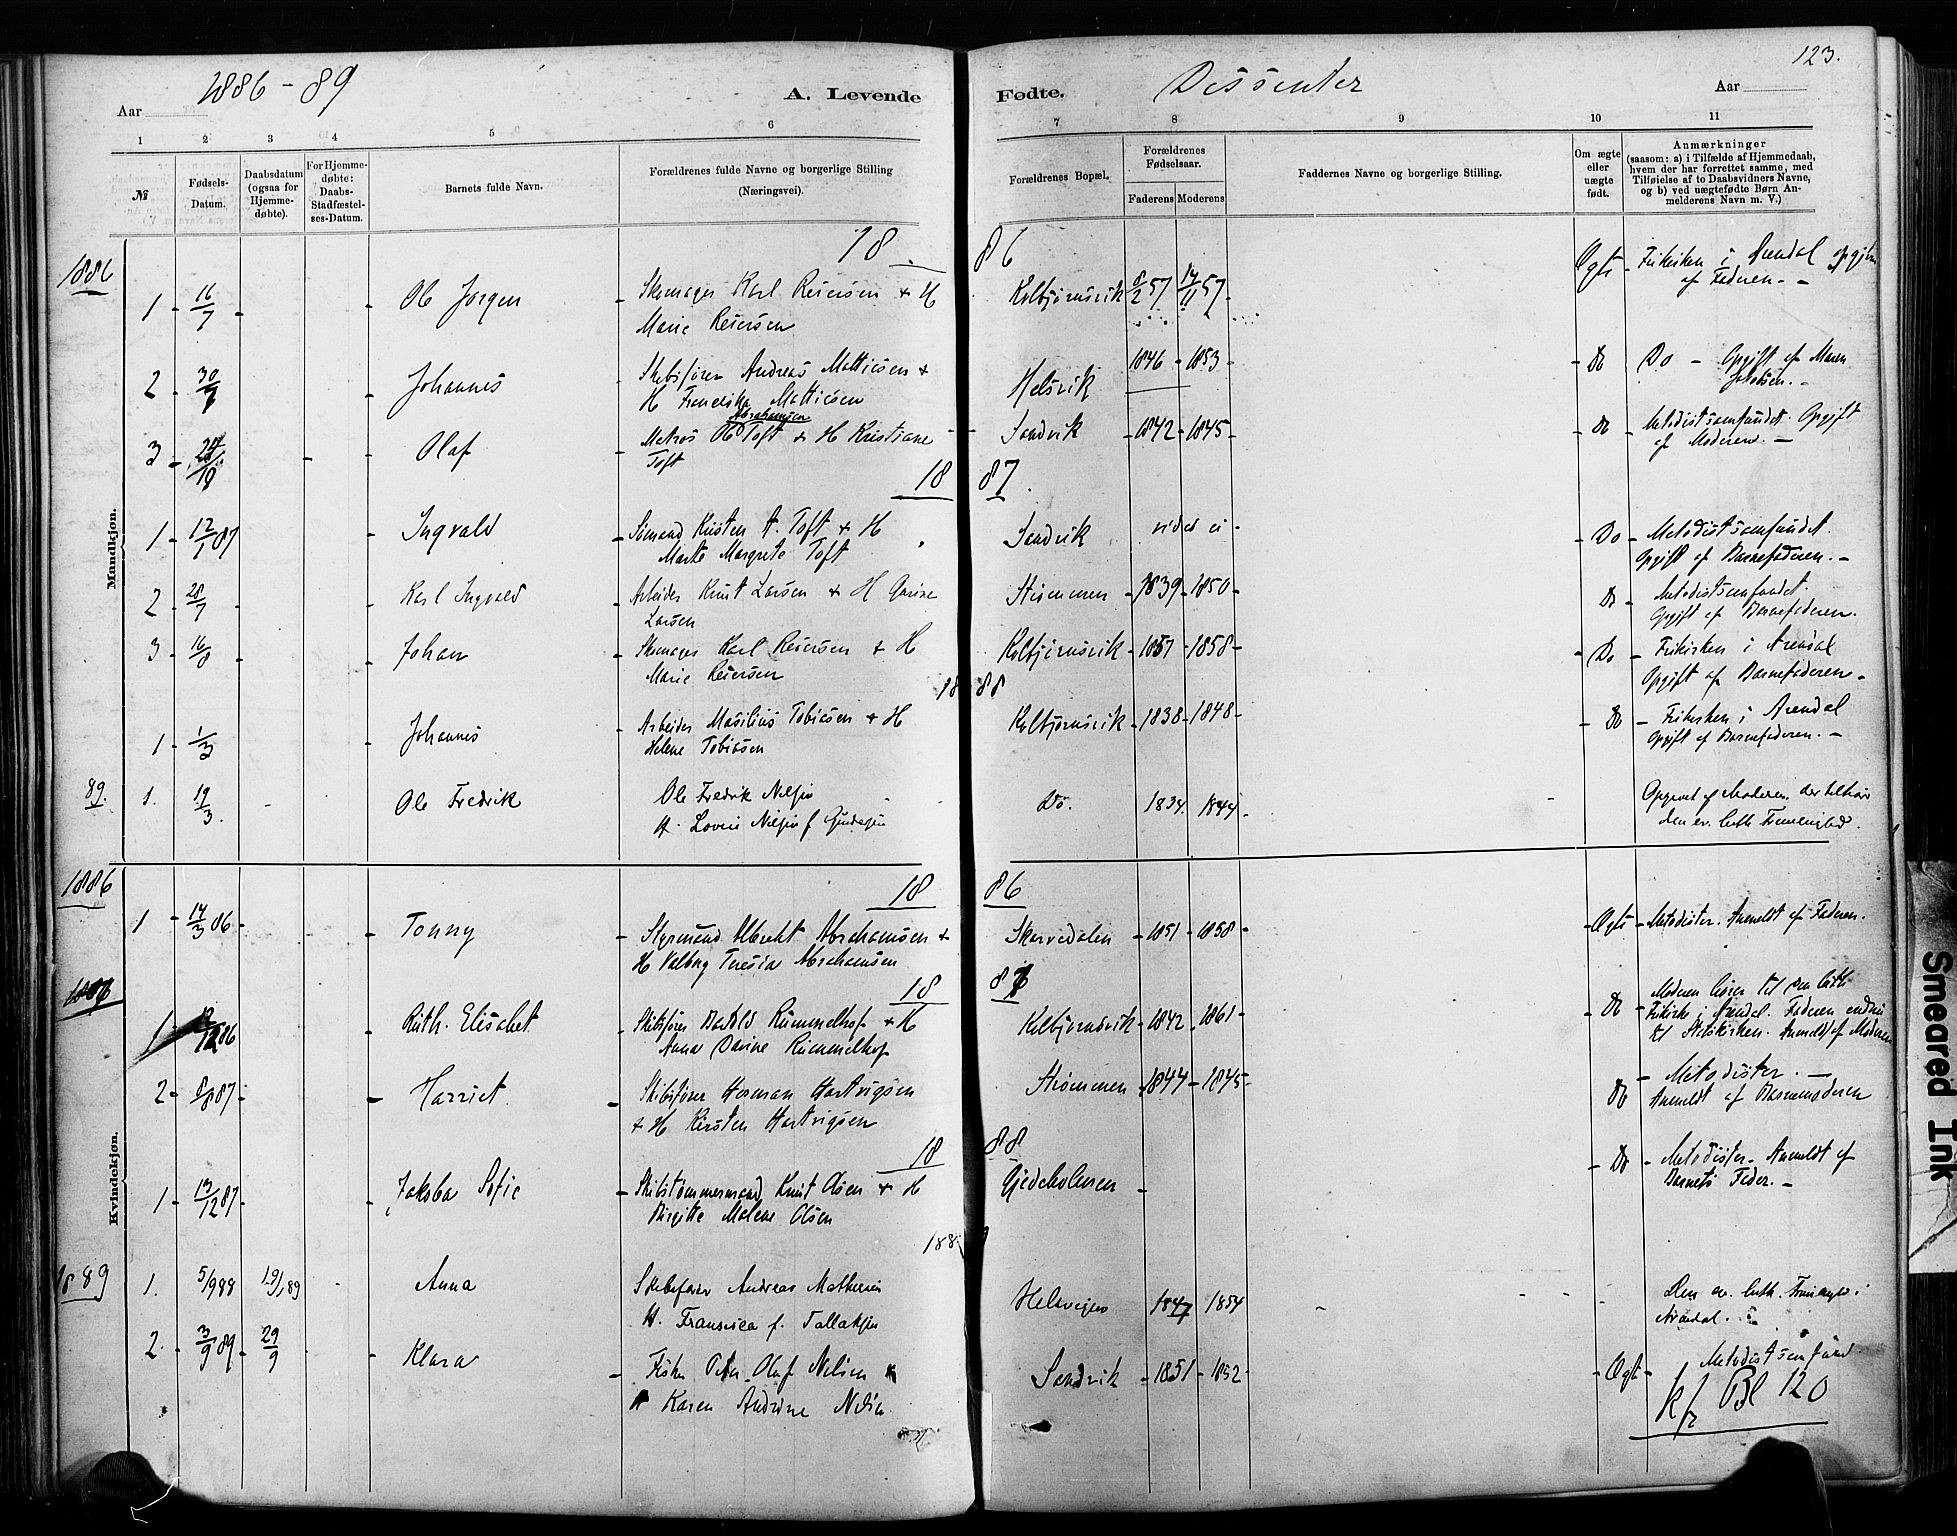 123.
1886 - 89
Dissenter
Aar
A. Levende
Fødte.
Aar
1 2 3 4 5 6 7 8 9 10 11
№
Fødsels-
Datum.
Daabsdatum
(ogsaa for
Hjemme-
døbte).
For Hjemme-
døbte:
Daabs-
Stadfæstel-
ses-Datum.
Barnets fulde Navn.
Forældrenes fulde Navne og borgerlige Stilling
(Næringsvei).
Forældrenes Bopæl.
Forældrenes
Fødselsaar.
Faderens Moderens
Faddernes Navne og borgerlige Stilling.
Om ægte
eller
uægte
født.
Anmærkninger
(saasom: a) i Tilfælde af Hjemmedaab,
hvem der har forrettet samme, med
Tilføielse af to Daabsvidners Navne,
og b) ved uægtefødte Børn An-
melderens Navn m. V.)
Mandkjøn.
1886
18 86
1 16/7 Ole Jørgen Skomager Karl Reiersen + H
Marie Reiersen
Kolbjørnsvik 8/2 57 14/11 57
Ægte Frikirken i Arendal opgiven
af Faderen -
2 30/7 Johannes Skibsfører Andreas Mathiesen +
H Franciska Mathiesen
Helsvik 1846 - 1853 Do Do - Opgift af Maren
3 Olaf Matros O Toft + H Kristiane
Abrahamsen
Toft
Sandvik 1842 - 1845 Do Metodistsamfundet. Opgift
af Moderen. -
18 87.
1 12/1 87 Ingvald Sømand Kristen A. Toft + H
Marte Margrete Toft
Sandvik vides ei Do Metodistsamfundet.
Opgift af Barnefaderen. -
2 28/7 Karl Ingvald Arbeider Knut Larsen + H
Larsen
Strømmen 1839 - 1850 Do Metodistsamfundet.
Opgift af Barnefaderen.
3 16/8 Johan Skomager Karl Reiersen + H
Marie Reiersen
Kolbjørnsvik 1857 - 1858 Do Frikirken i Arendal
Opgift af Barnefaderen -
18 88
1 1/3 Johannes Arbeider Masilius Tobiasen + H
Helene Tobiasen
Kolbjørnsvik 1838 - 1848 Do Frikirken i Arendal
Opgift af Barnefaderen. -
89. 1. 19/3. Ole Fredrik Ole Fredrik Nilsen
H. Lovise Nilsen f.
Do. 1834. 1844
Opgivet af Moderen, der tilhører
den ev. luth. Frimenighed.
Kvindekjøn.
1886
18 86
1 14/3 86 Tonny Styrmand Albrekt Abrahamsen +
H Valborg Teresia Abrahamsen
Skarvedalen 1851 - 1858 Ægte Metodister. Anmeldt af Faderen.
18 87
1 86 Ruth Elisabet Skibsfører Rummelhof + H
Anna Davine Rummelhof
Kolbjørnsvik 1842 1861 Do Moderen hører til den luth
Frikirke i Arendal. Faderen endnu
til Statskirken. Anmeldt af Moderen
2 8/8 87 Harriet Skibsfører Herman Hartvigsen
+ H Kirsten Hartvigsen
Strømmen 1844 - 1845 Do Metodister. -
Anmeldt af Barnemoderen
18 88
1 13/12 87 Jakoba Sofie Skibstømmermand Knut Olsen + H
Birgitte Malene Olsen
Gjedeholmen Do Metodister - Anmeldt af
Barnets Fader. -
1889
1. 5/9 88 19/1 89 Anna Skibsfører Andreas Mathiesen
H. Fransisca f. Tallaksen
Helsvigen 1847 1854 Den ev. luth. Frimenighed i
Arendal.
2. 3/9 89 29/9 Klara Fisker Peder Olaf Nilsen
H Karen Andrine Nilsen
Sandvik 1851 - 1852 Ægte Metodistsamfund
kfr Bl 120
Smeared Ink